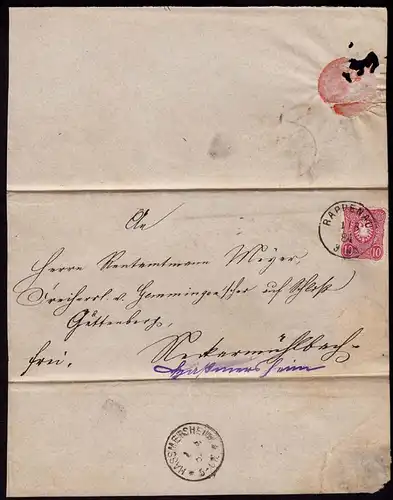 An
RAPPENAU
10
Herrn Rentamtmann Meyer,
Freiherrl. v. Gemmingen'scher auf Schloß
Guttenberg,
frei. Neckarmühlbach
Hassmersheim
HASSMERSHEIM